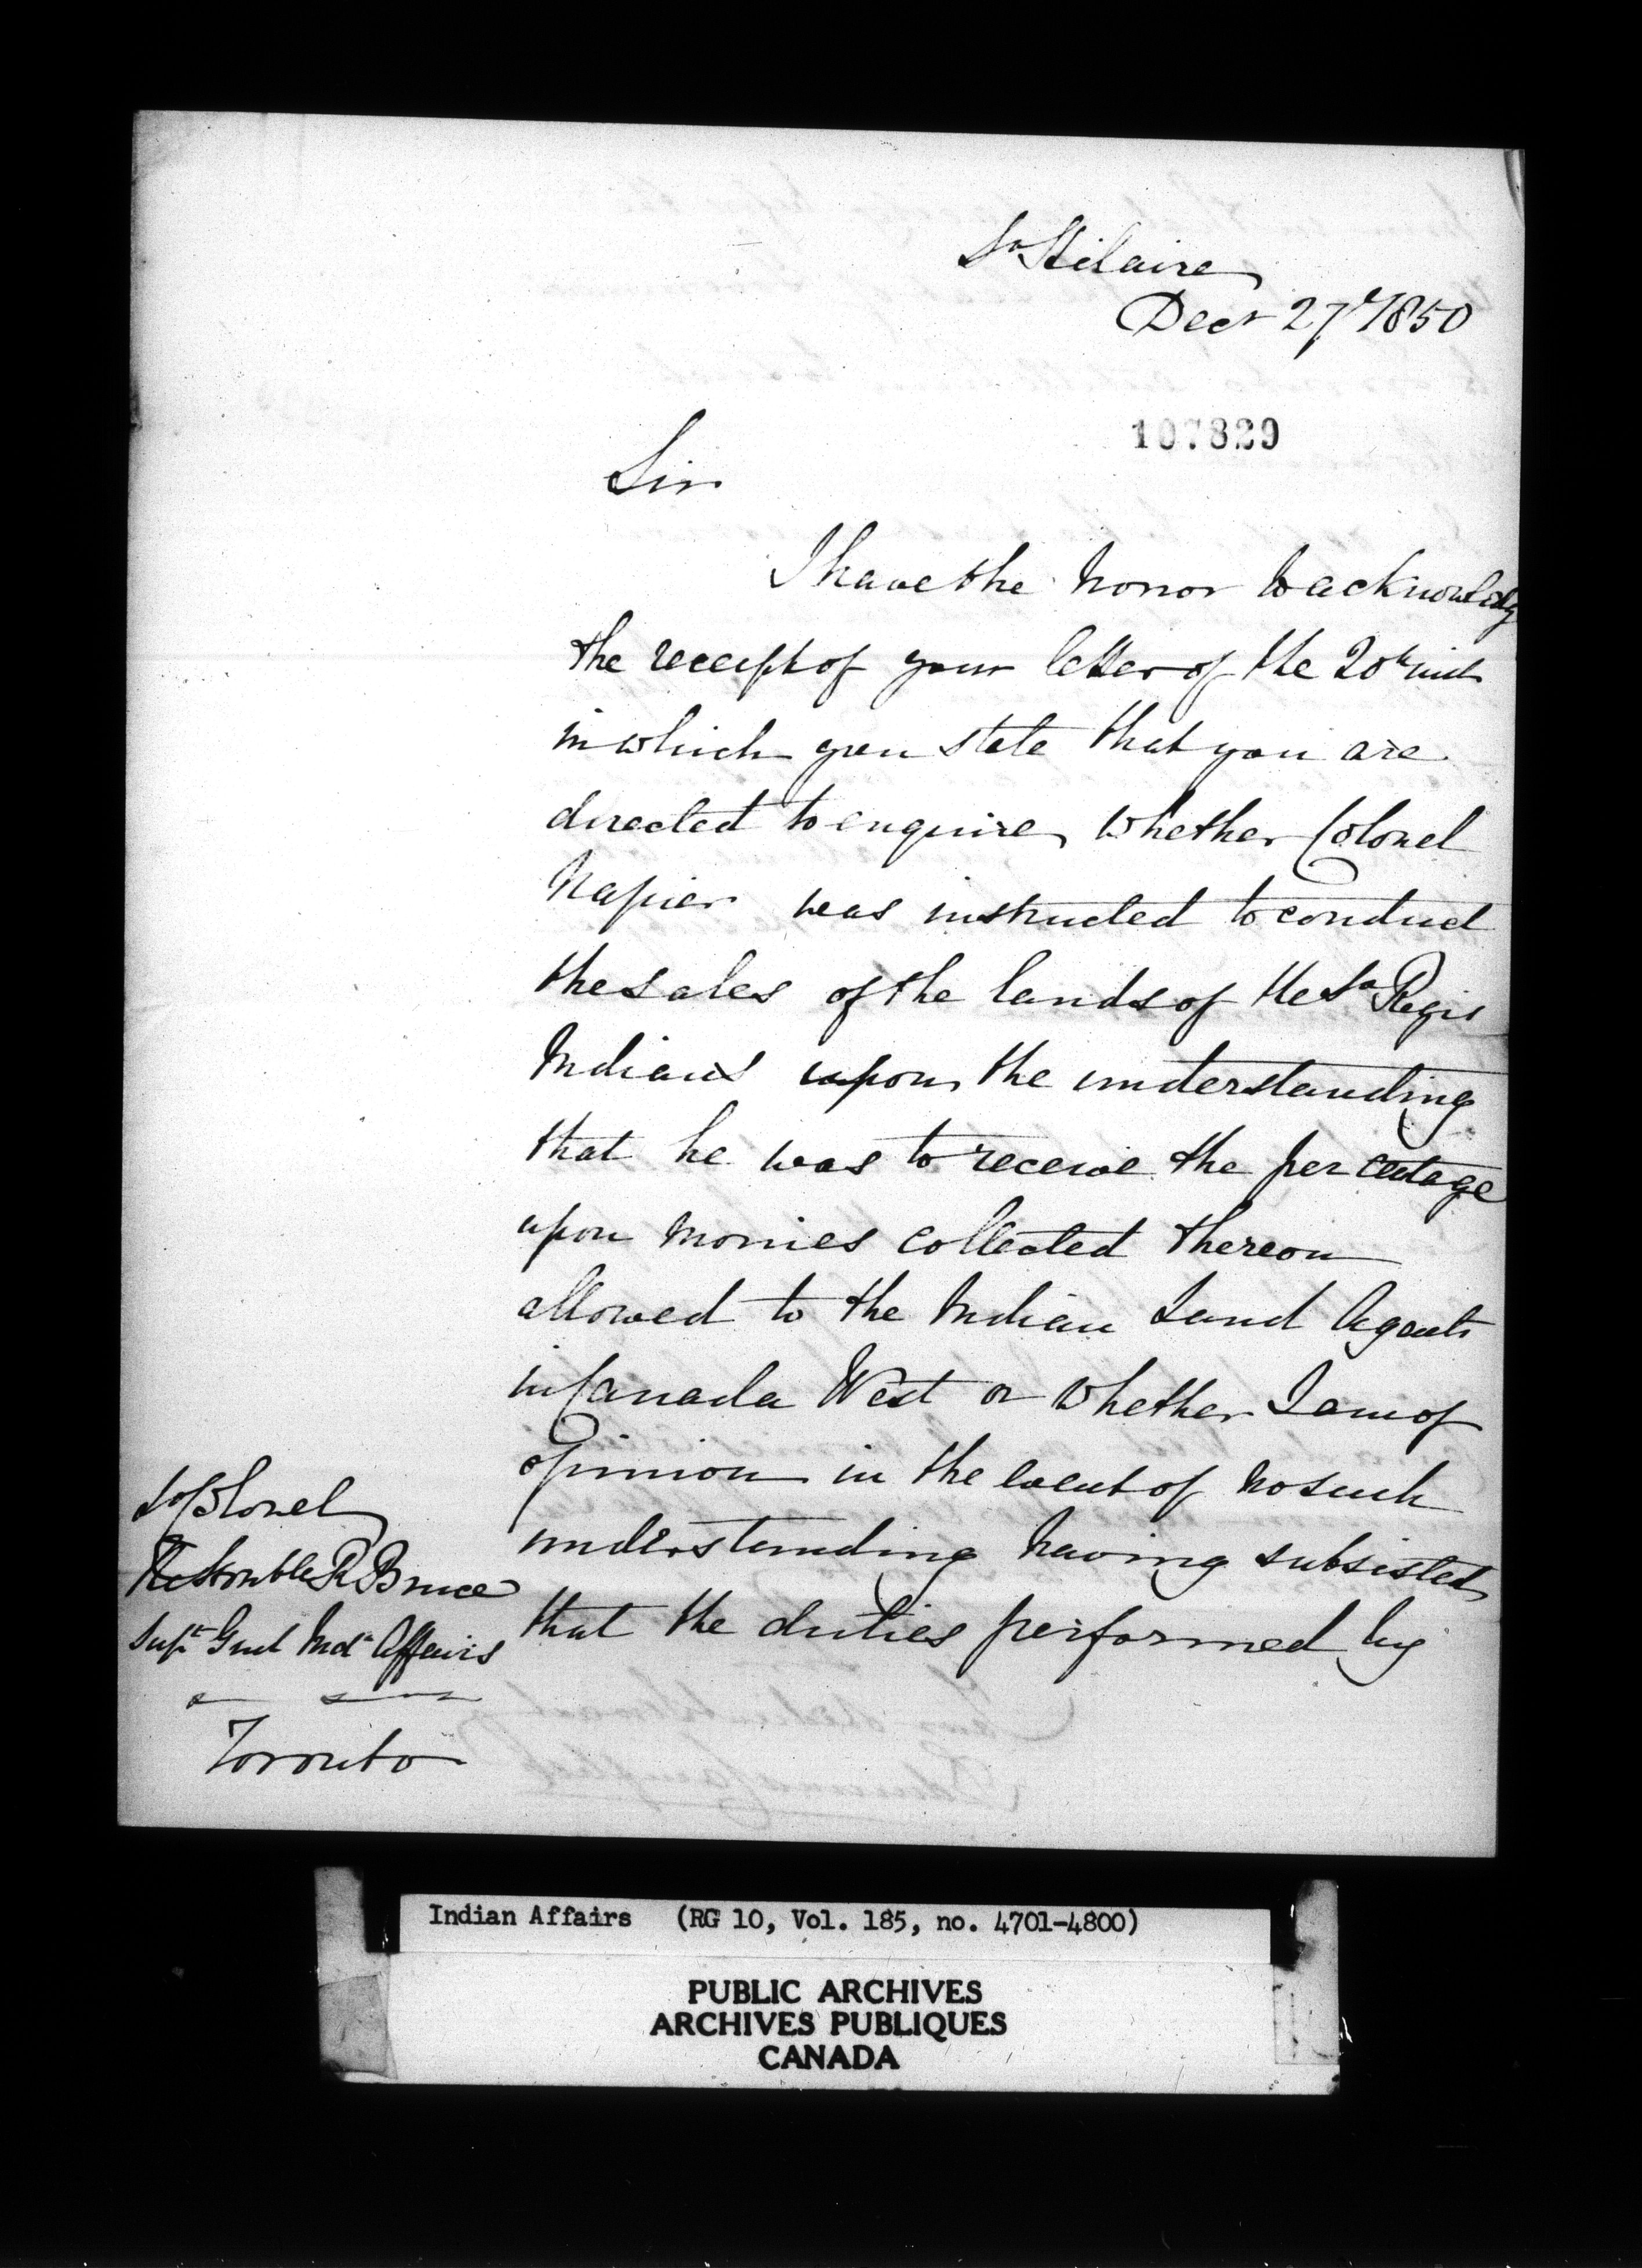 St Hilaire
Decr 27th 1850
107829
Sir
I have the honor to acknowledge
the receipt of your letter of the 20th inst
in which you state that you are
directed to enquire whether Colonel
Napier was instructed to conduct
the sales of the lands of the St Regis
Indians upon the understanding
that he was to receive the per centage
upon monies collected thereon
allowed to the Indian Land Agents
in Canada West or whether I am of
opinion in the event of no such
understanding having subsisted
that the duties performed by
Lt Colonel
The Honble R Bruce
Supt Genl Indn Affairs
Toronto
Indian Affairs (RG 10, Vol. 185, no. 4701-4800)
PUBLIC ARCHIVES
ARCHIVES PUBLIQUES
CANADA